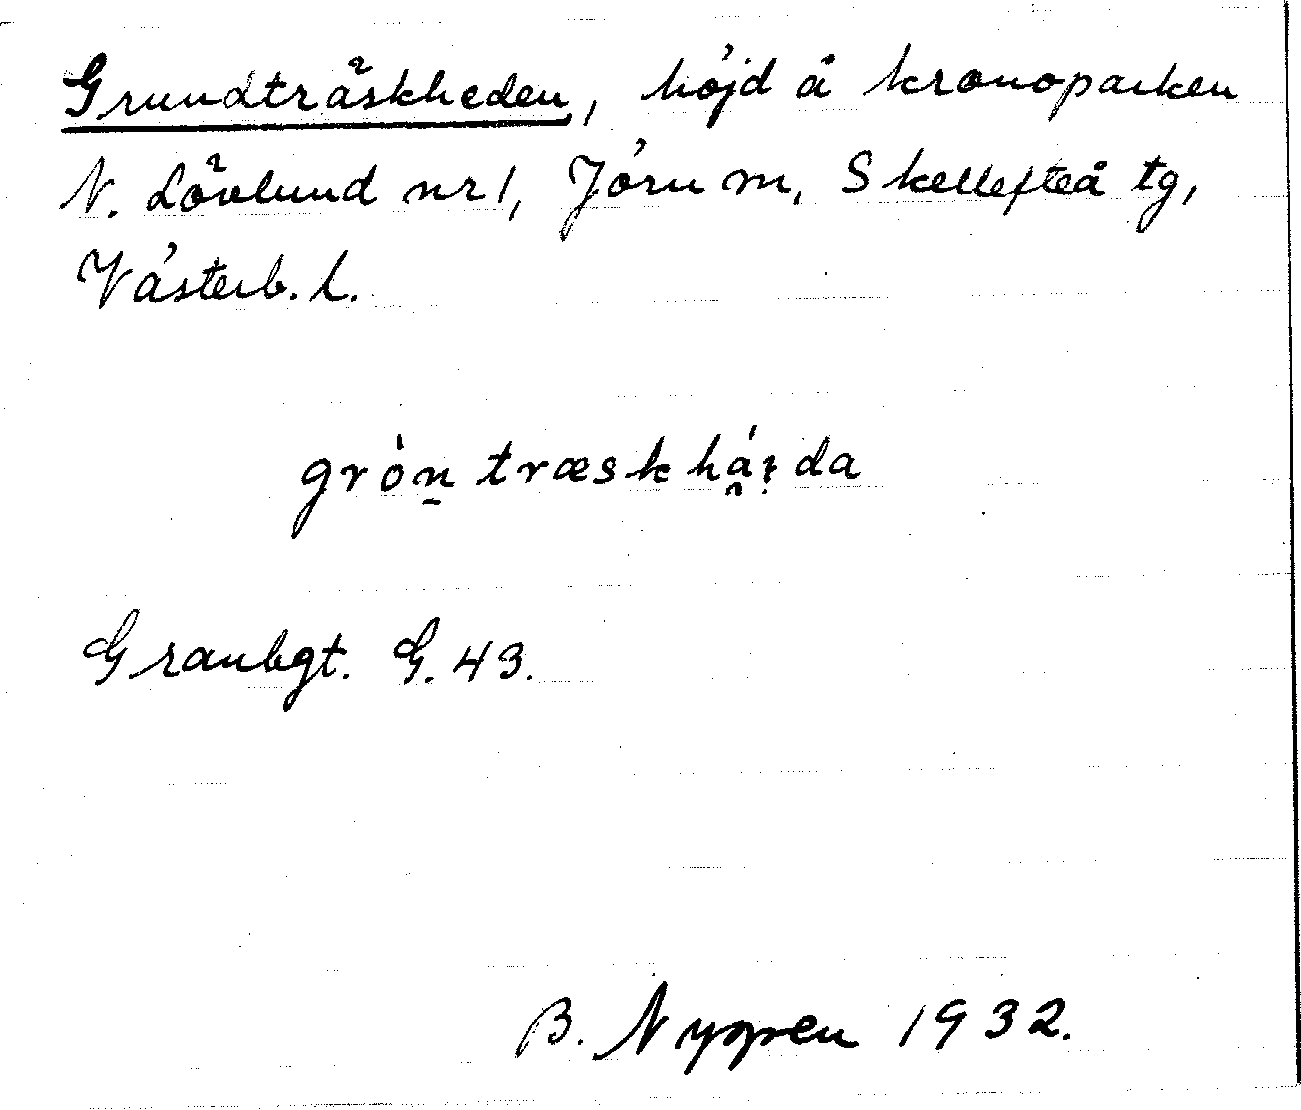 Grundträskheden, höjd å kronoparken
N. Lövlund nr 1, Jörn m, Skellefteå tg,
Västerb. l.
gròn̠ træskhá̯ı̣da
Granbgt. G. 43.
B. Nygren 1932.